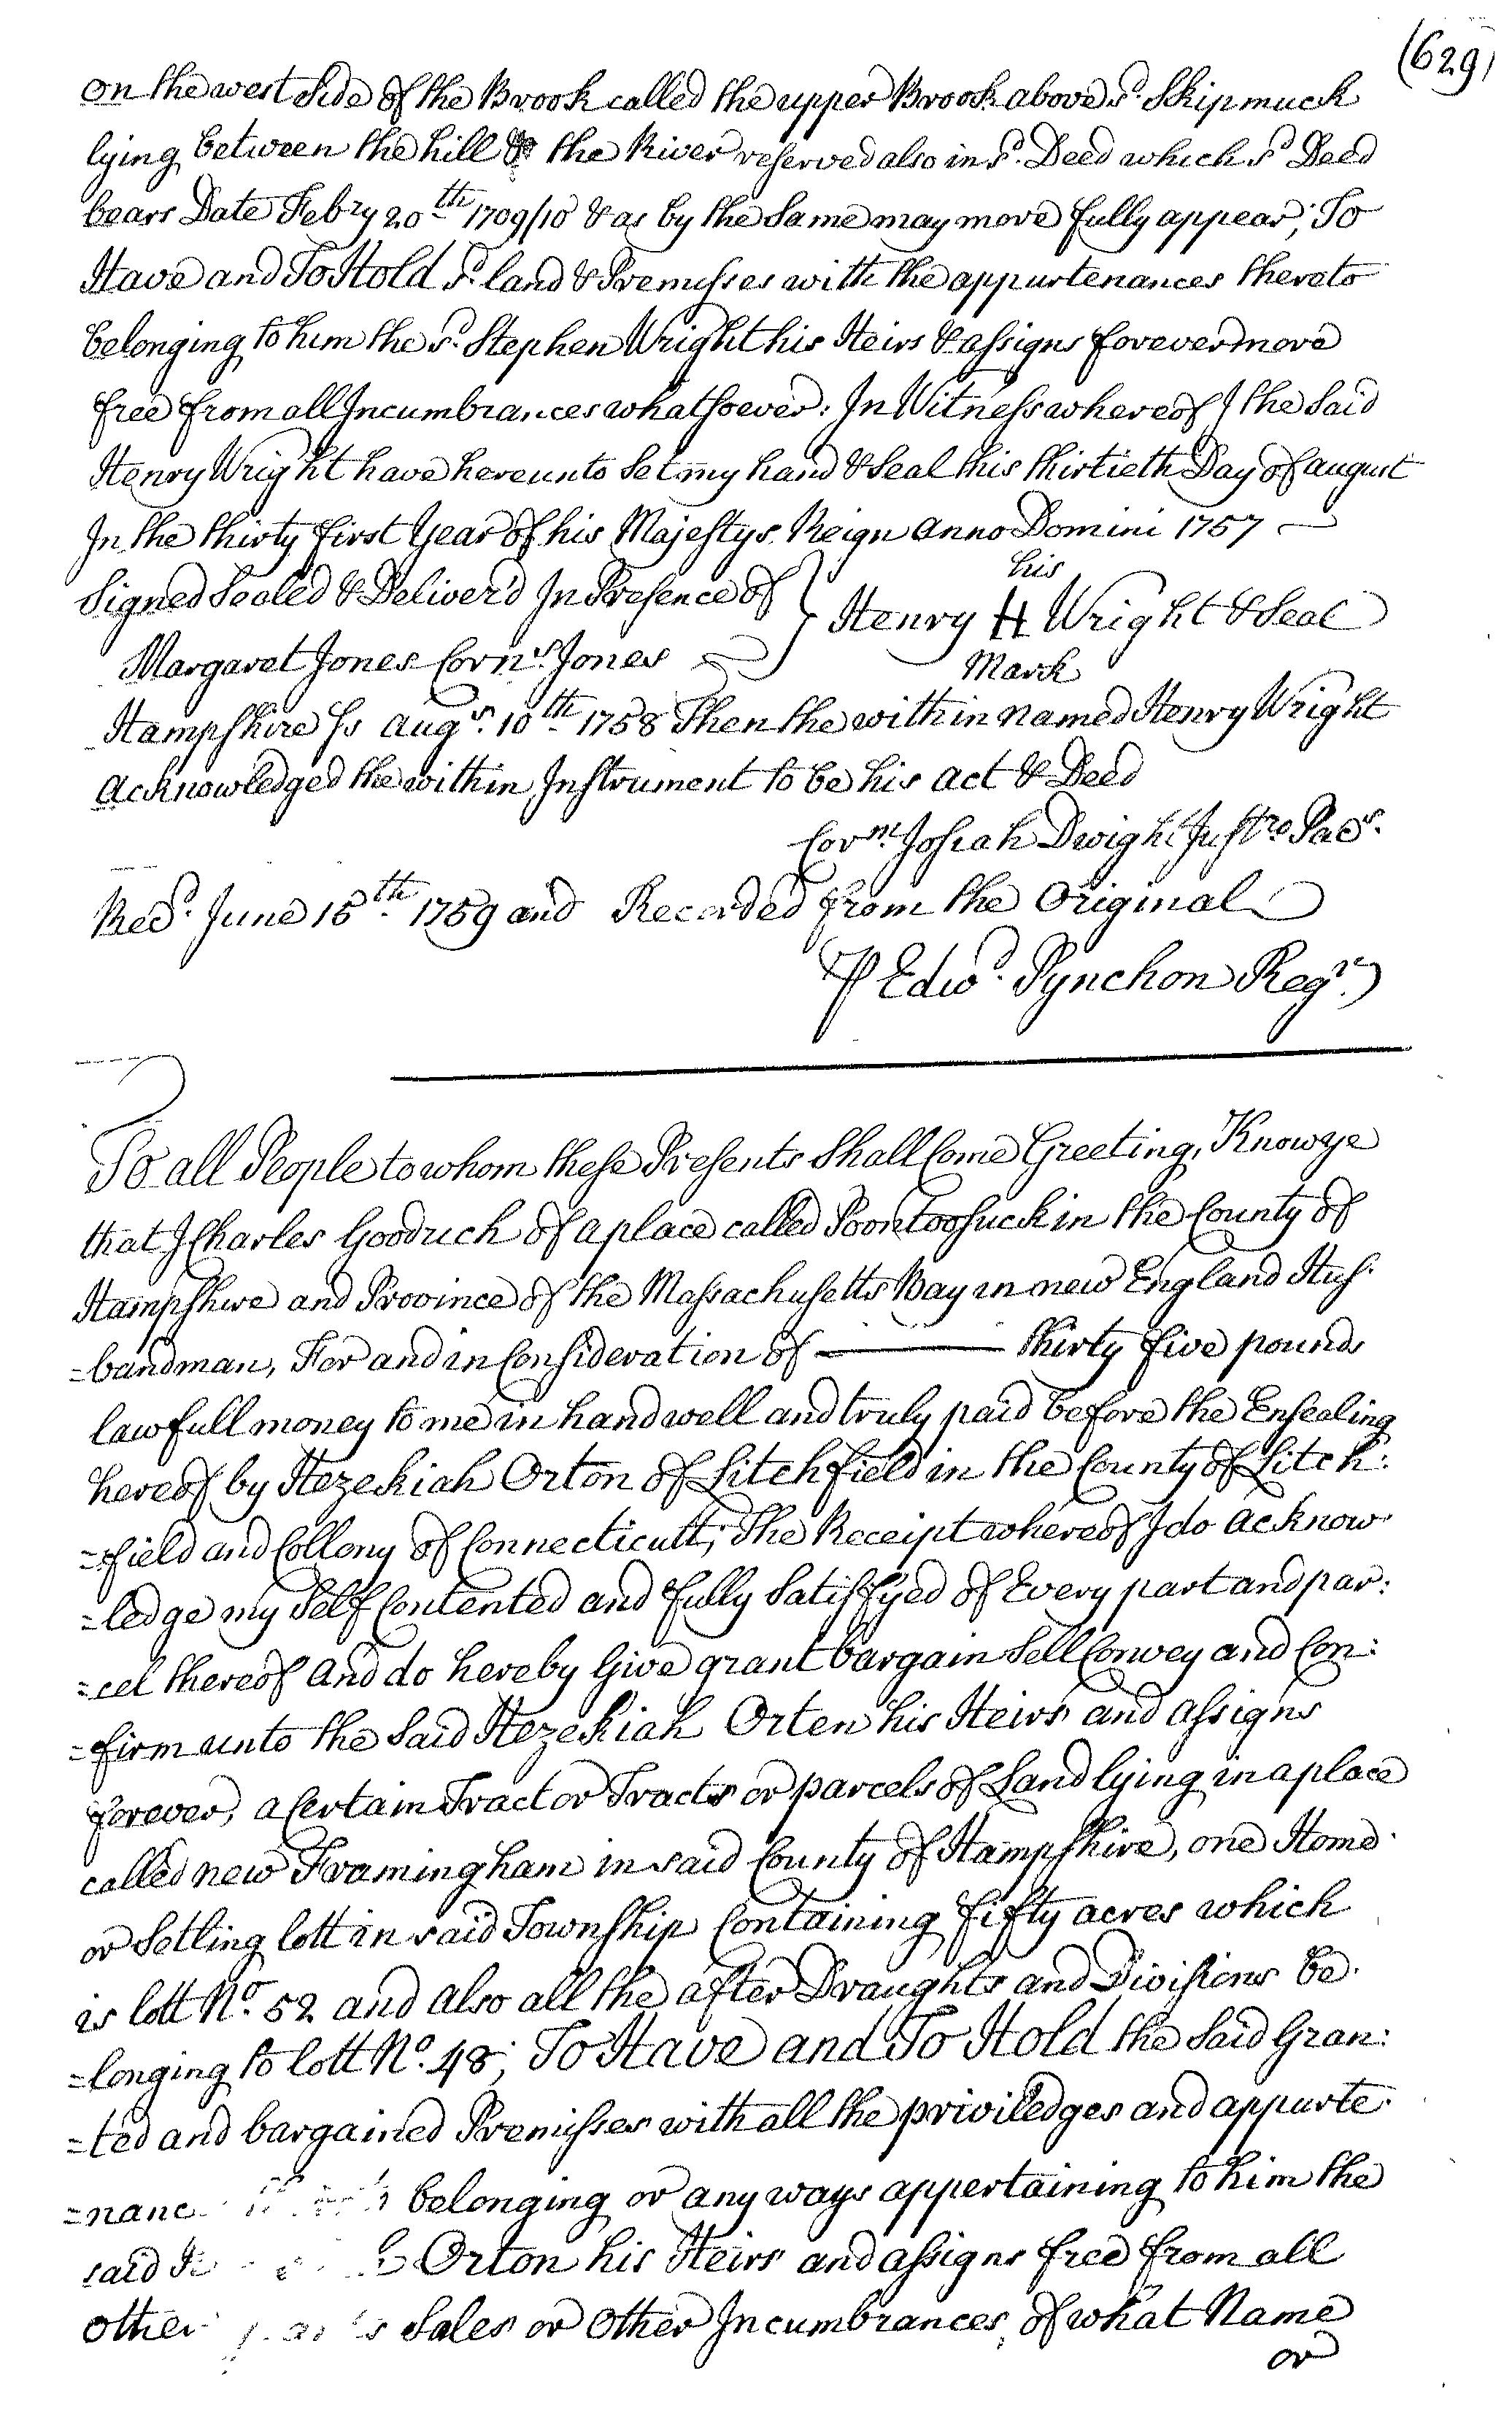 (629)
on the west side of the Brook called the upper Brook above sd. Skipmuck
lying between the hill & the River reserved also in sd. Deed which sd Deed
bears Date Febry 20th 1709/10 & as by the same may more fully appear; To
Have and To Hold sd. land & Premisses with the appurtenances thereto
belonging to him the sd. Stephen Wright his Heirs & assigns forevermore
free from all Incumbrances whatsoever: In Witness whereof I the said
Henry Wright have hereunto set my hand & seal this thirtieth Day of august
In the thirty first Year of his Majestys Reign anno Domini 1757
his
Signed Sealed & Deliver'd In Presence of } Henry H Wright & Seal
Margaret Jones Corns. Jones
Mark
Hampshire ss augst. 10th 1758 Then the within named Henry Wright
acknowledged the within Instrument to be his act & Deed
Cornt Josiah Dwight Justce Pacs.
Recd. June 15th. 1759 and Recorded from the Original
P Edwd. Pynchon Regr.
To all People to whom these Presents shall Come Greeting, Know ye
that I Charles Goodrich of a place called Poontoosuck in the County of
Hampshire and Province of the Massachusetts Bay in new England Hus:
=bandman, For and in Consideration of ——— thirty five pounds
lawfull money to me in hand well and truly paid before the Ensealing
hereof by Hezekiah Orton of Litchfield in the County of Litch:
=field and Collony of Connecticutt; The Receipt whereof I do acknow
=ledge my self Contented and fully Satisfyed of Every part and par:
=cel thereof and do hereby Give grant bargain Sell Convey and Con:
=firm unto the said Hezekiah Orten his Heirs and assigns
forever, a Certain Tract or Tracts or parcels of Land lying in a place
called new Framingham in said County of Hampshire, one Home
or Setling lott in said Township Containing fifty acres which
is lott No. 52 and also all the after Draughts and Divisions be
=longing to lott No. 48; To Have and To Hold the said Gran:
=ted and bargained Premisses with all the priviledges and appurte
=nanc belonging or any ways appertaining to him the
said Orton his Heirs and assigns free from all
other Sales or other Incumbrances of what Name
or